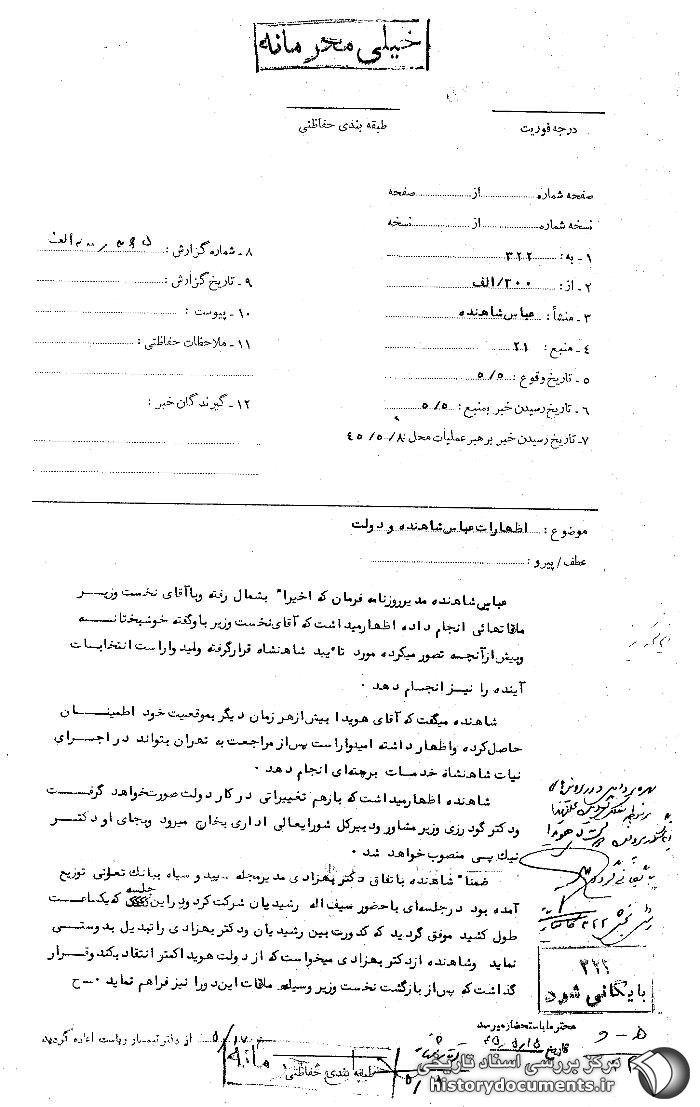 خیلی محرمانه
درجه فوریت
طبقه بندی حفاظتی
صفحه شماره ........ از ........ صفحه
نسخه شماره ........ از ........ نسخه
۱ـ به : ۳۲۲
۲ـ از : ۳۰۰/الف
۳ـ منشأ : عباس شاهنده
۴ـ منبع : ۲۱
۵ـ تاریخ وقوع : ۵/۵
۶ـ تاریخ رسیدن خبر بمنبع : ۵/۵
۷ـ تاریخ رسیدن خبر برهبر عملیات محل : ۴۵/۵/۸
۸ـ شماره گزارش :
۹ـ تاریخ گزارش :
۱۰ـ پیوست :
۱۱ـ ملاحظات حفاظتی :
۱۲ـ گیرندگان خبر :
موضوع : اظهارات عباس شاهنده و دولت
عطف/پیرو :
عباس شاهنده مدیر روزنامه فرمان که اخیرا" بشمال رفته وبا آقای نخست وزیر
ملاقاتهائی انجام داده اظهارمیداشت که آقای نخست وزیر باو گفته خوشبختانه
وبیش از آنچه تصور میکرده مورد تائید شاهنشاه قرارگرفته وامیدوار است انتخابات
آینده را نیز انجام دهد .
شاهنده میگفت که آقای هویدا بیش ازهر زمان دیگر بموقعیت خود اطمینان
حاصل کرده واظهار داشته امیدوار است پس از مراجعت به تهران بتواند در اجرای
نیات شاهنشاه خدمات برجسته‌ای انجام دهد .
شاهنده اظهارمیداشت که بازهم تغییراتی در کار دولت صورت خواهد گرفت
ودکتر گودرزی وزیر مشاور ودبیرکل شورایعالی اداری بخارج میرود وبجای او دکتر
نیک پی منصوب خواهد شد .
ضمنا" شاهنده باتفاق دکتر بهزادی مدیرمجله سپید و سیاه ببانک تعاونی توزیع
آمده بود درجلسه‌ای باحضور سیف اله رشیدیان شرکت کرد ودراین جلسه که یکساعت
طول کشید موفق گردید که کدورت بین رشیدیان ودکتر بهزادی راتبدیل بدوستی
نماید وشاهنده ازدکتر بهزادی میخواست که از دولت هویدا کمتر انتقاد بکند وقرار
گذاشت که پس از بازگشت نخست وزیر وسیله ملاقات این دو را نیز فراهم نماید .ـ ح
۳۲۲
بایگانی شود
محترما باستحضار میرسد
تاریخ ۴۵/۵/۱۵
از دفتر تیمسار ریاست اعاده گردید
طبقه بندی حفاظتی
مرکز بررسی اسناد تاریخی
historydocuments.ir